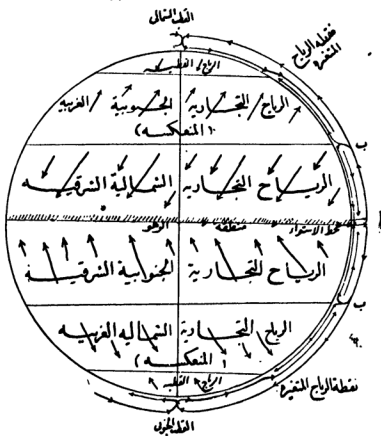 القطب الشمالى
نقطة الرياح
المتغيرة
الرياح القطبية
الرياح التجارية الجنوبية الغربية
(المنعكسه)
ب
الرياح التجارية الشمالية الشرقيه
خط الاستواء منطقة الرهو
الرياح التجارية الجنوبية الشرقية
ب
الرياح التجارية الشماليه الغربيه
(المنعكسه)
الرياح القطبيه
نقطة الرياح المتغيرة
القطب الجنوبى